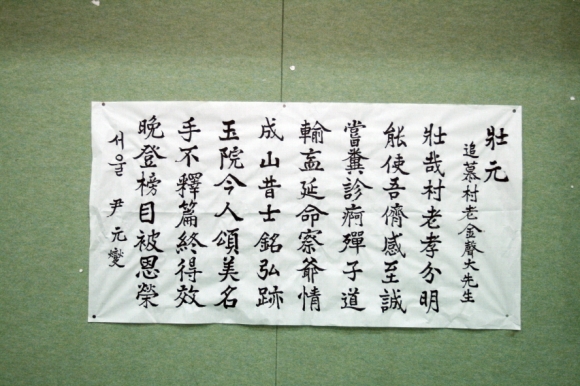 壯元
追慕村老金聲大先生
壯哉村老孝分明
能使吾儕感至誠
嘗糞診痾殫子道
輸衁延命察爺情
成山昔士銘弘跡
玉院今人頌美名
手不釋篇終得效
晩登榜目被恩榮
서울 尹元燮